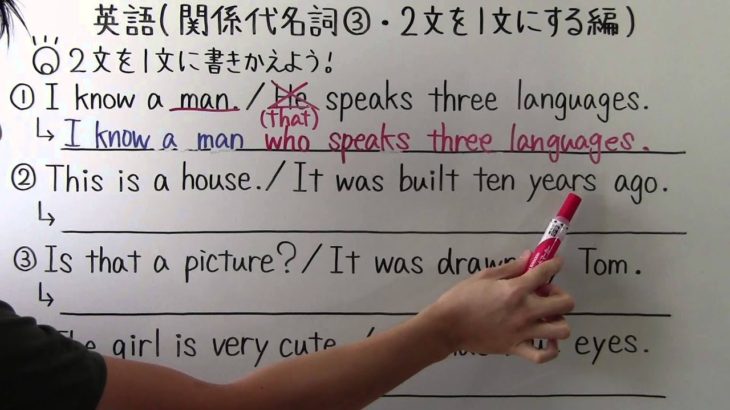 英語(関係代名詞③・2文を1文にする編)
2文を1文に書きかえよう!
① I know a man. / He speaks three languages.
(that)
↳ I know a man who speaks three languages.
② This is a house. / It was built ten years ago.
↳
③ Is that a picture? / It was drawn Tom.
↳
The girl is very cute. / eyes.